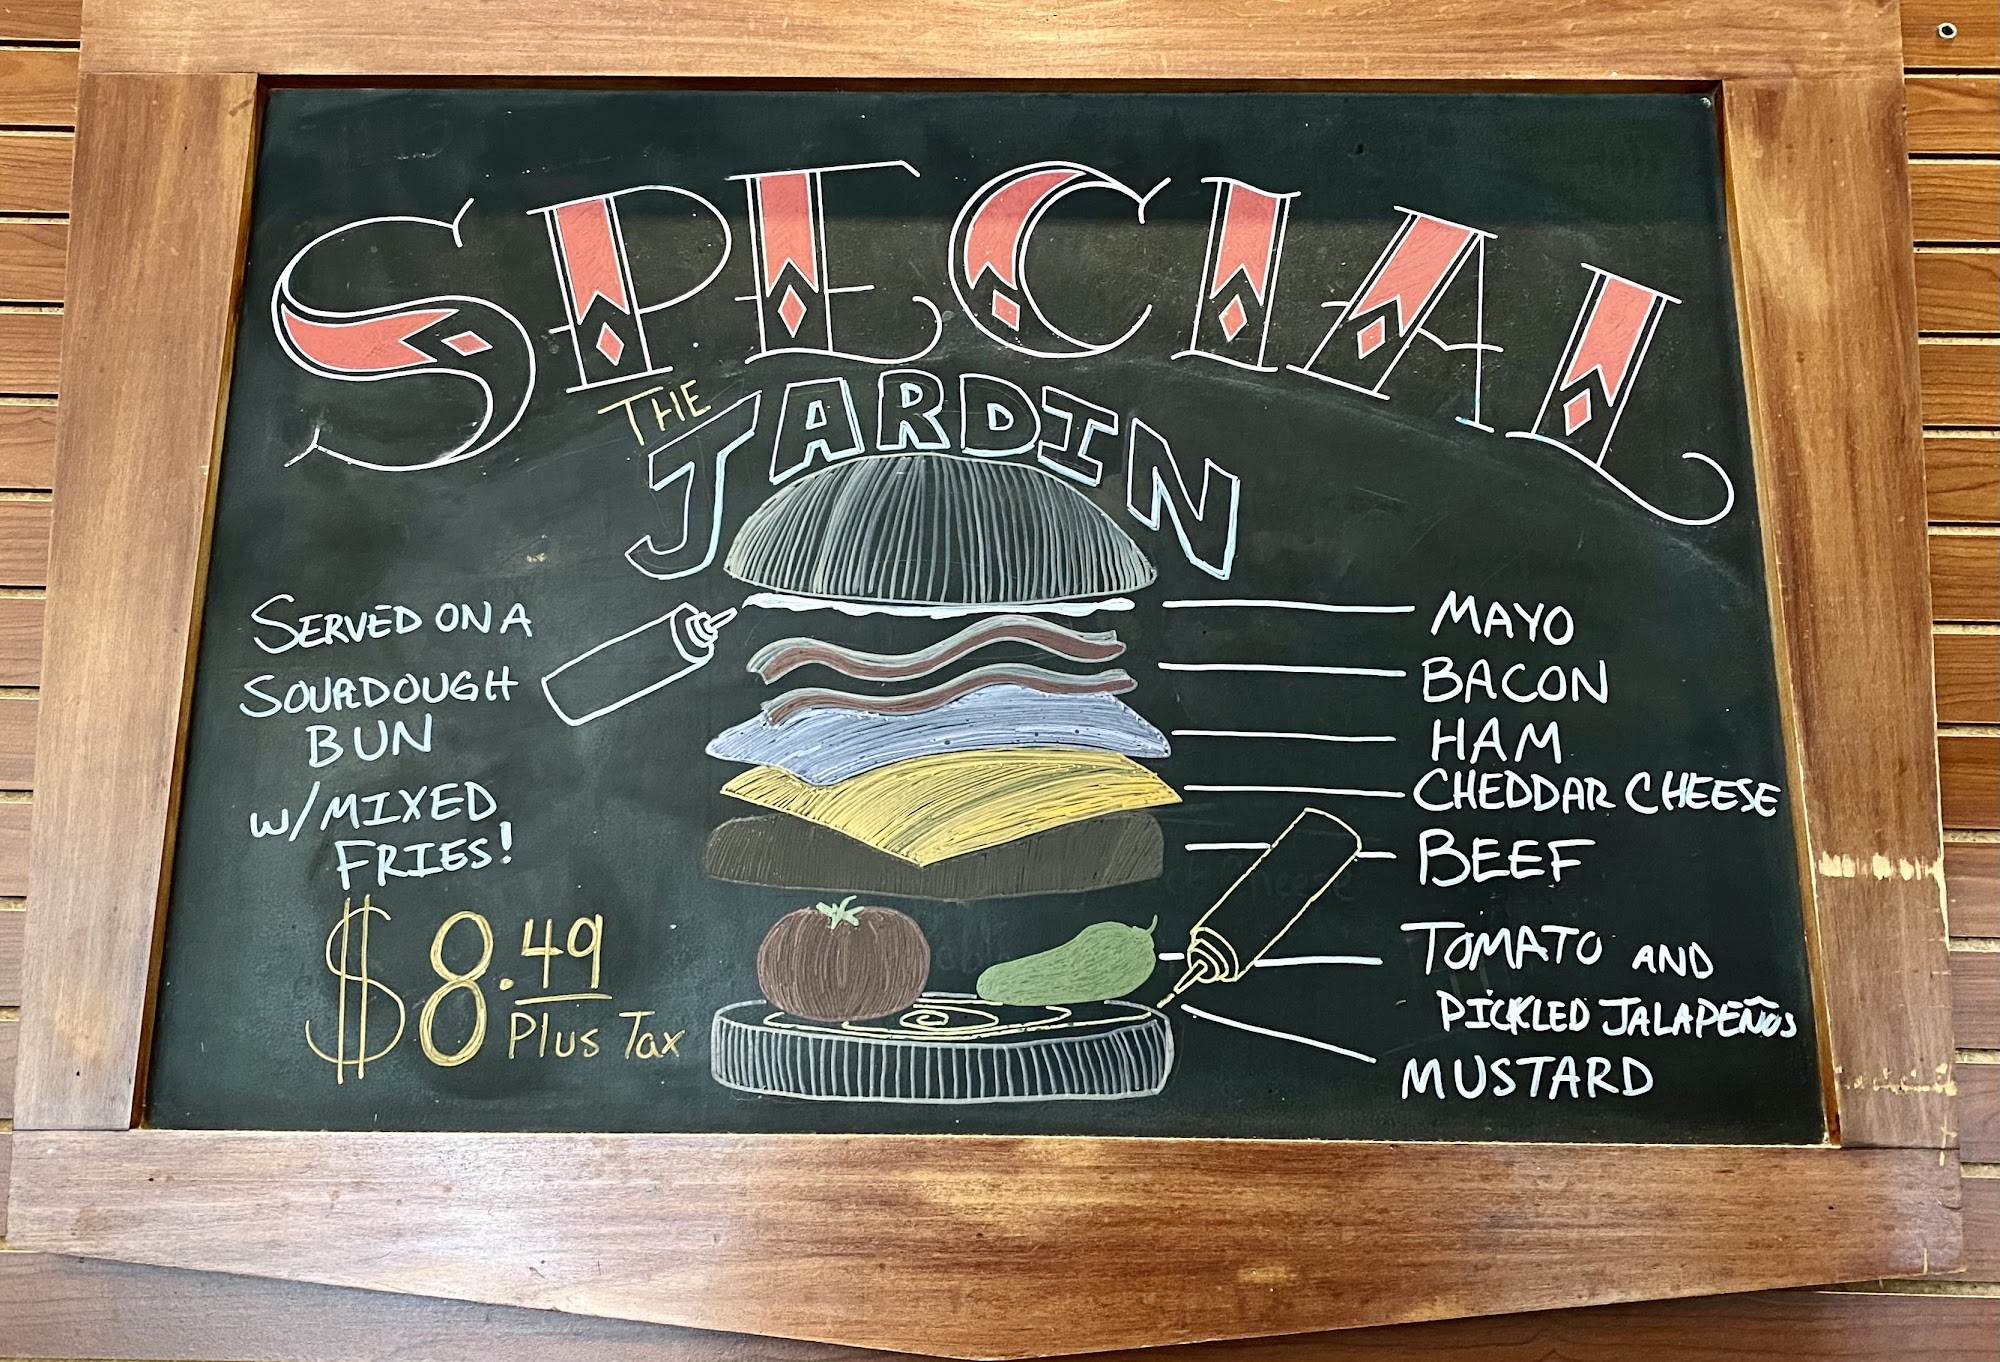 SPECIAL
THE
JARDIN
SERVED ON A
SOURDOUGH
BUN
W/MIXED
FRIES!
$8.49
Plus Tax
MAYO
BACON
HAM
CHEDDAR CHEESE
BEEF
TOMATO AND
PICKLED JALAPEÑOS
MUSTARD